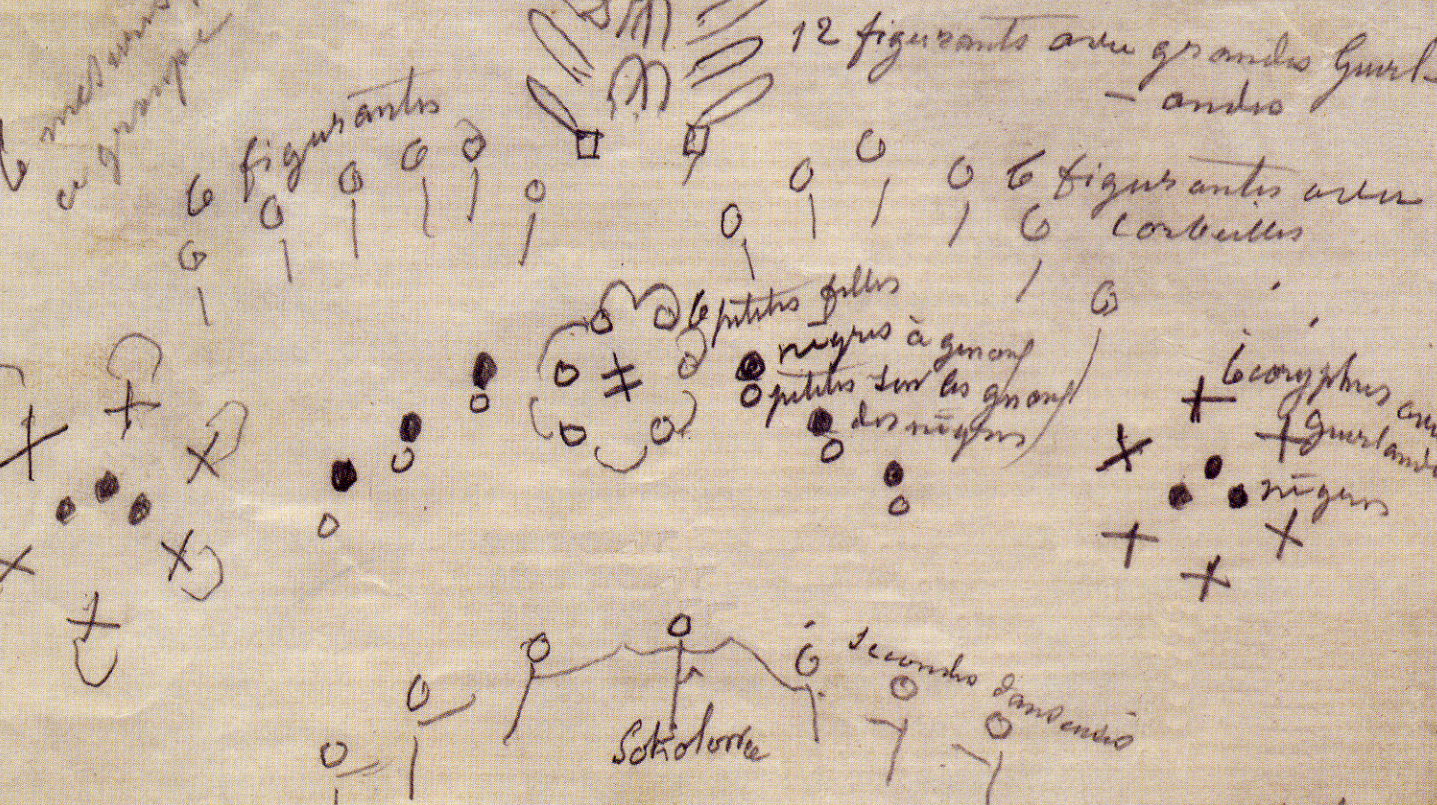 6 mesures
ce groupe
12 figurants avec grandes Guirl-
- andes
6 figurantes
6 figurantes avec
corbeilles
6 petites filles
nègres à genoux
petites sur les genoux
des nègres
6 coryphées avec
Guirlandes
nègres
6 secondes danseuses
Sokolova